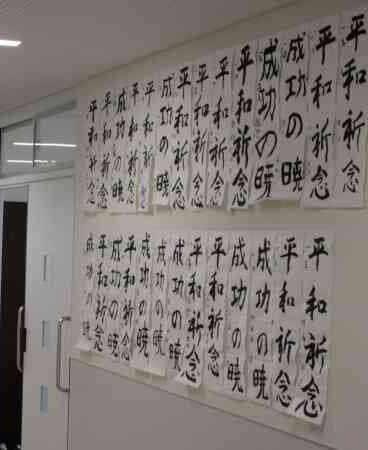 平和祈念
平和祈念
成功の暁
成功の暁
平和祈念
平和祈念
平和祈念
平和祈念
成功の暁
平和祈念
平和祈念
成功の暁
平和祈念
平和祈念
平和祈念
平和祈念
成功の暁
成功の暁
平和祈念
平和祈念
成功の暁
成功の暁
成功の暁
平和祈念
成功の暁
平和祈念
成功の暁